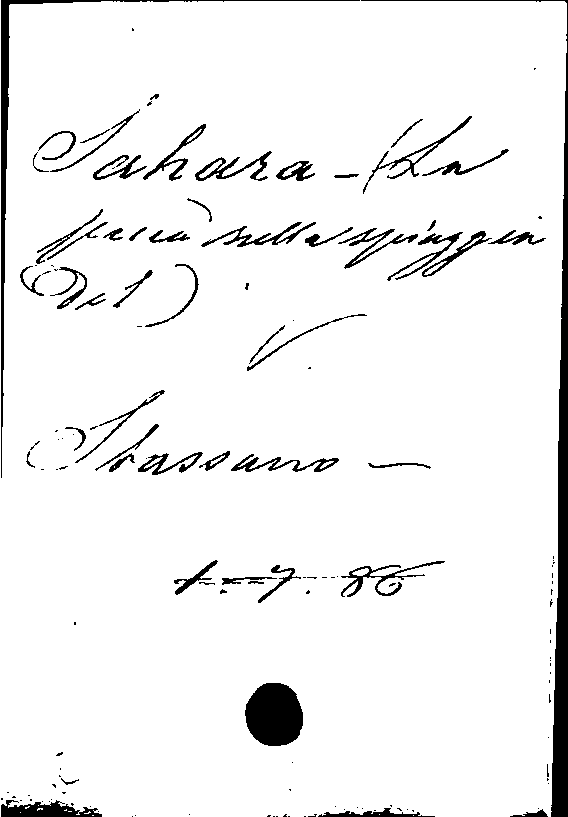 Sahara - (La
pesca sulla spiaggia
del)
V.
Stassano -
1.-7.86